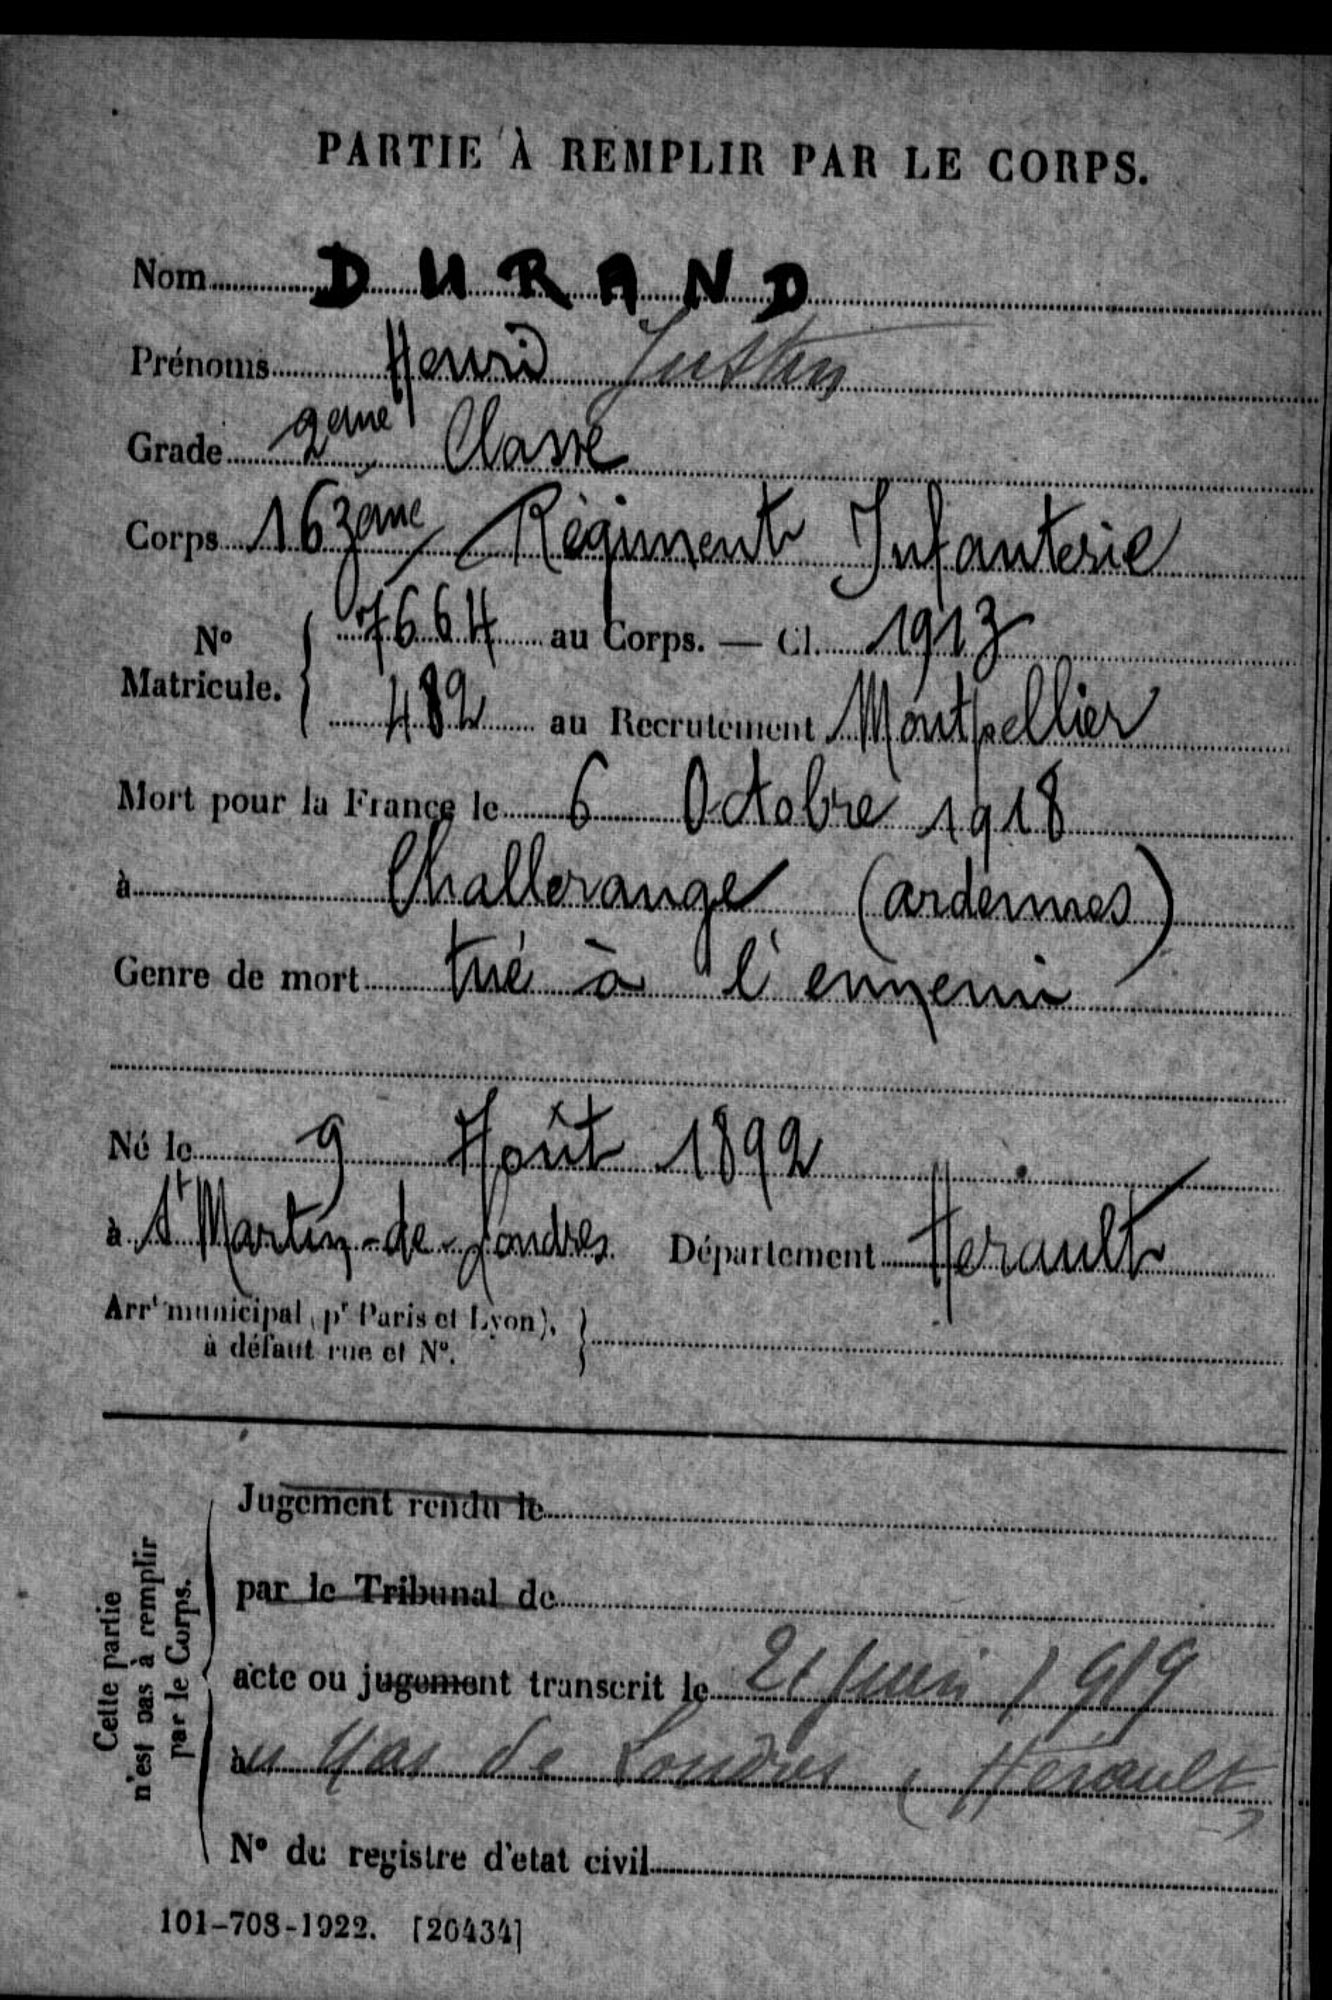 PARTIE À REMPLIR PAR LE CORPS.
Nom DURAND
Prénoms Henri Justin
Grade 2ème Classe
Corps 163ème Régiment Infanterie
No Matricule. 7664 au Corps. — Cl. 1913
482 au Recrutement Montpellier
Mort pour la France le 6 Octobre 1918
à Challerange (ardennes)
Genre de mort tué à l'ennemi
Né le 9 Août 1892
à St Martin-de-Londres Département Hérault
Arrt municipal (pr Paris et Lyon), à défaut rue et No.
Cette partie n'est pas à remplir par le Corps.
Jugement rendu le
par le Tribunal de
acte ou jugement transcrit le 21 Juin 1919
au Mas de Londres (Hérault)
No du registre d'état civil
101-708-1922. [26434]